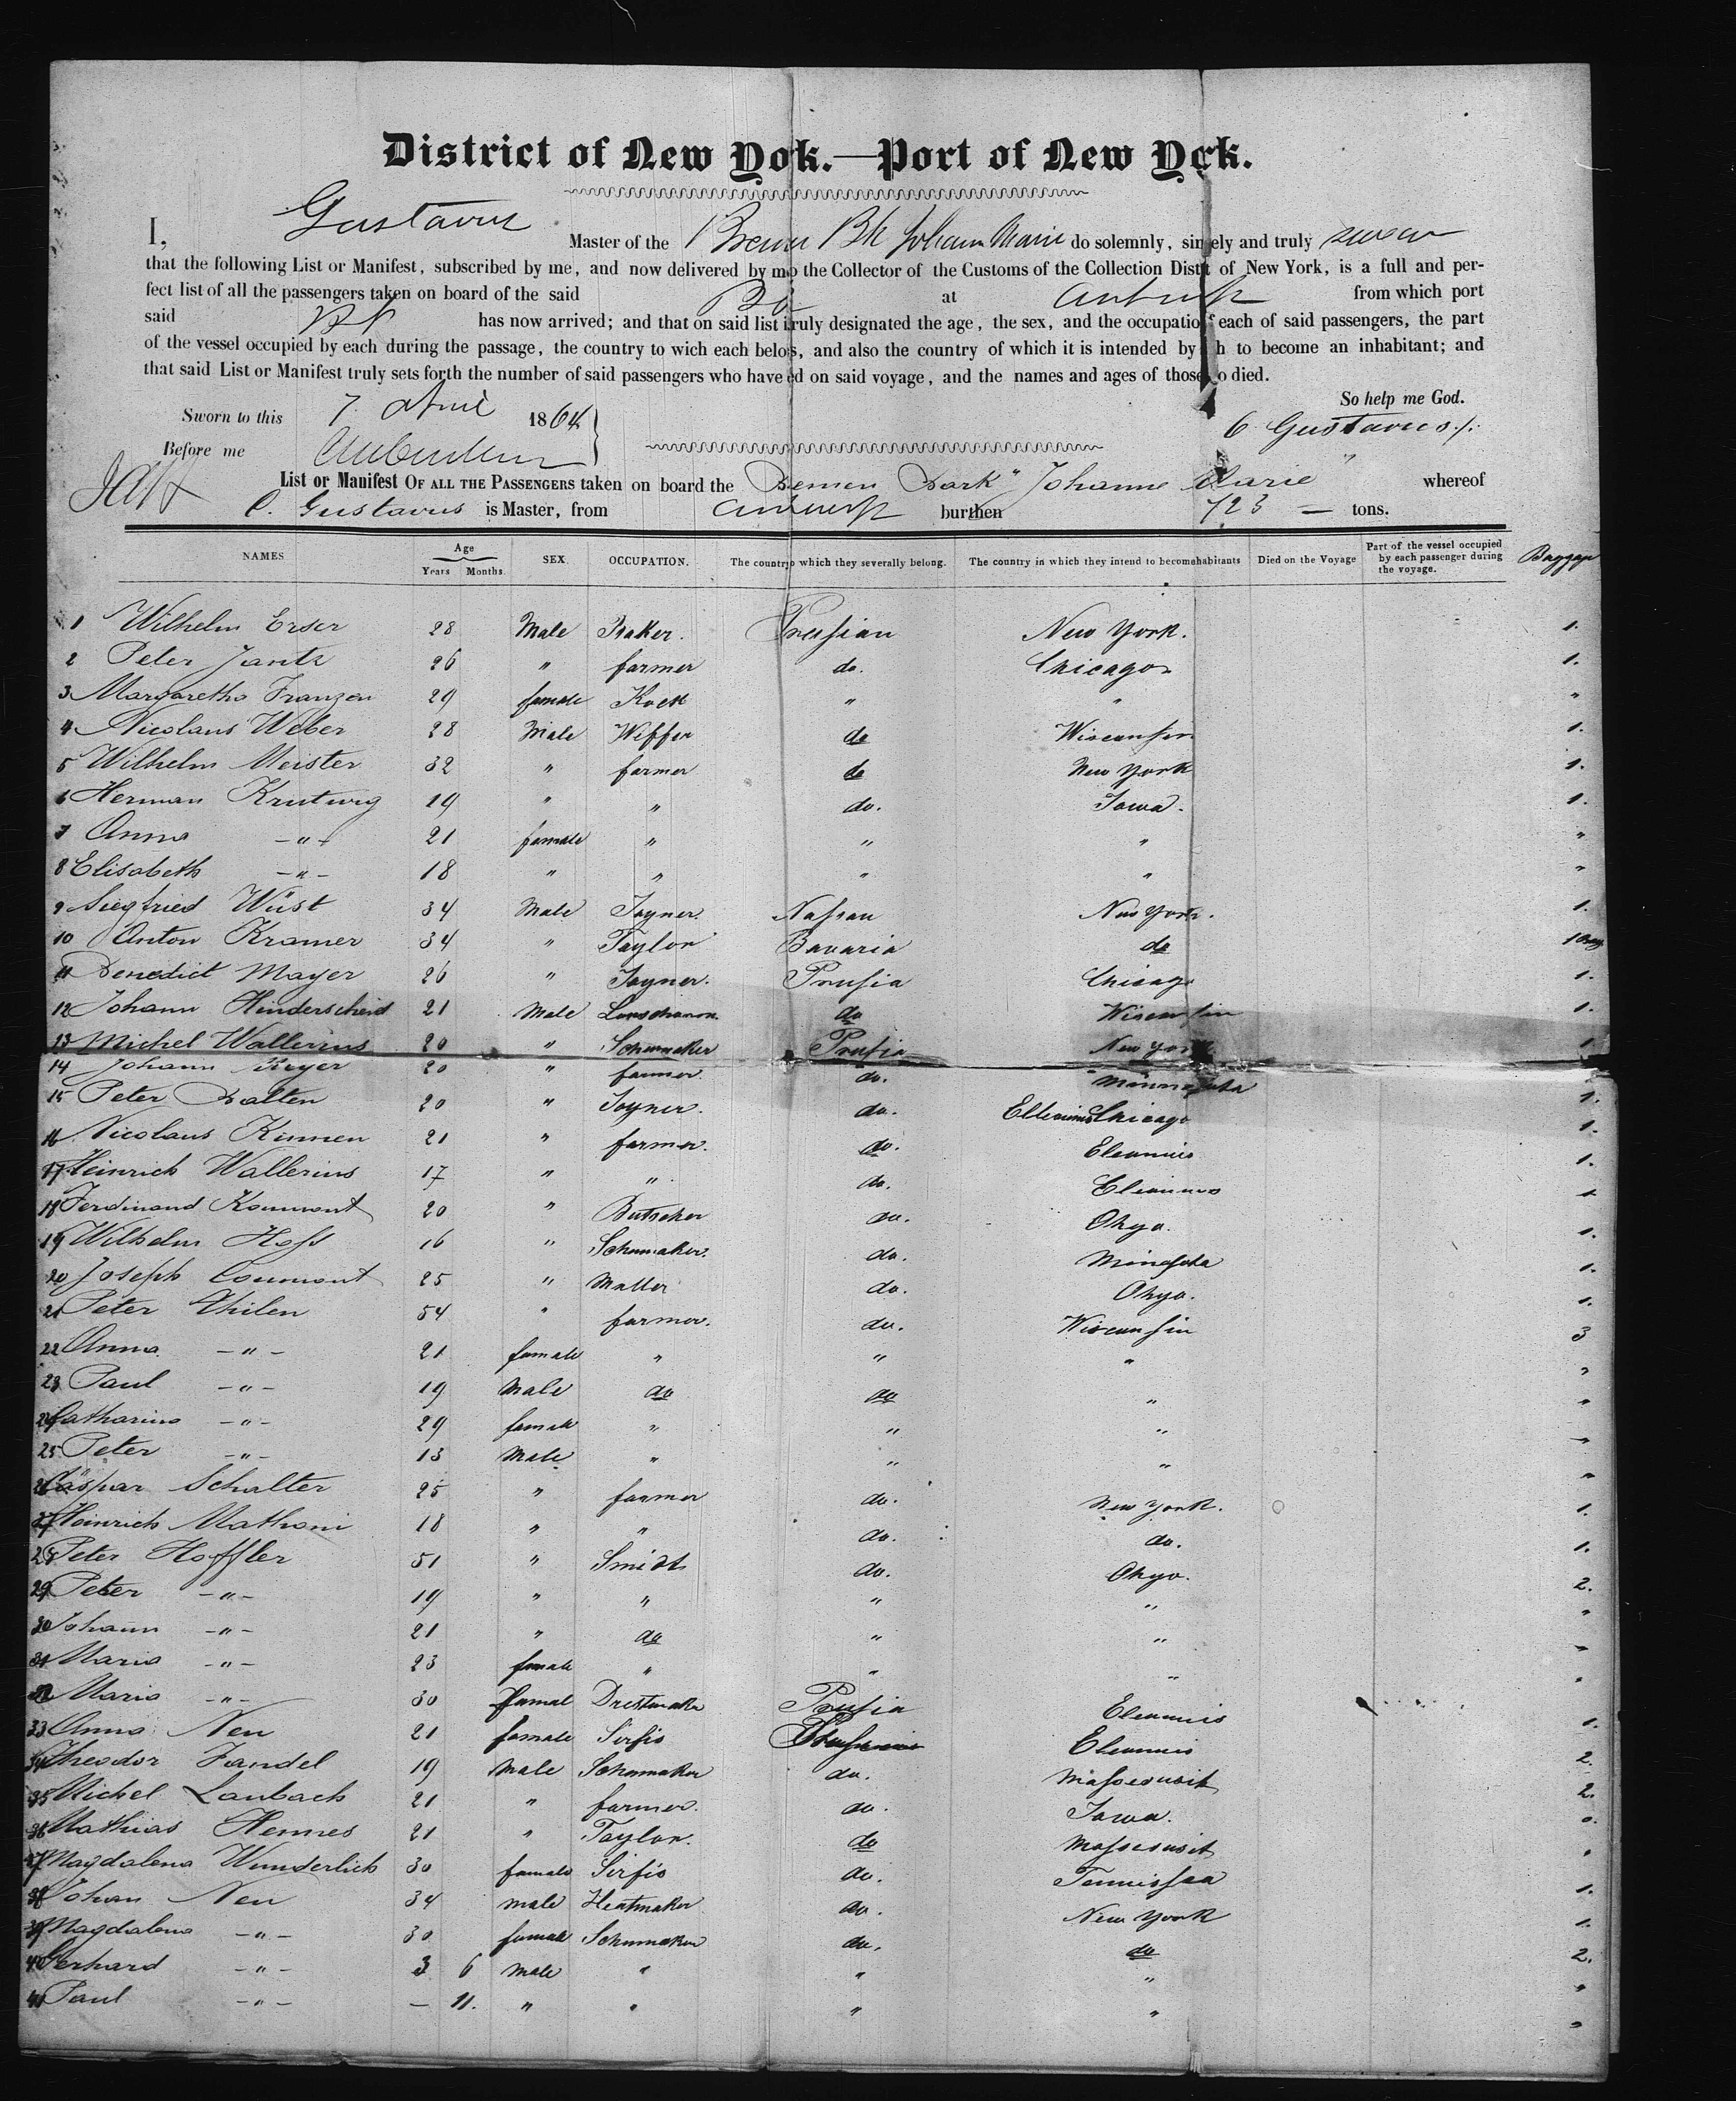 District of New Yok.—Port of New Yrk.
I, Gustavus Master of the Bremen Bk Johann Marie do solemnly, sinely and truly swear
that the following List or Manifest, subscribed by me, and now delivered by m the Collector of the Customs of the Collection Dist of New York, is a full and per-
fect list of all the passengers taken on board of the said Bk at Antwerp from which port
said Bk has now arrived; and that on said list truly designated the age, the sex, and the occupatio each of said passengers, the part
of the vessel occupied by each during the passage, the country to wich each belos, and also the country of which it is intended by h to become an inhabitant; and
that said List or Manifest truly sets forth the number of said passengers who have ed on said voyage, and the names and ages of those o died.
So help me God.
Sworn to this 7. April 1864
C Gustavus
Before me
List or Manifest OF ALL THE PASSENGERS taken on board the Bremen Bark "Johanne Marie" whereof
C. Gustavus is Master, from Antwerp burthen 723 — tons.
NAMES Age Years Months SEX. OCCUPATION. The country which they severally belong. The country in which they intend to become habitants Died on the Voyage Part of the vessel occupied by each passenger during the voyage. Baggage
1 Wilhelm Erser 28 Male Baker. Prussian New York. 1.
2 Peter Jantz 26 " farmer do. Chicago 1.
3 Margaretha Franzen 29 female Kock " " "
4 Nicolaus Weber 28 Male Weffer do Wisconsin 1.
5 Wilhelm Meister 32 " farmer do New York 1.
6 Herman Krutwig 19 " " do. Iowa. 1.
7 Anna -"- 21 female " " " "
8 Elisabeth -"- 18 " " " " "
9 Siegfried Wüst 34 Male Joyner. Nassau New York. 1.
10 Anton Kramer 34 " Taylor Bavaria do 1
11 Benedict Mayer 26 " Joyner. Prusia Chicago 1.
12 Johann Hinderscheid 21 Male do Wisconsin 1.
13 Michel Wallerius 20 " Schumaker Prusia New York 1
14 Johann Reyer 20 " farmer. do. Minnesota 1.
15 Peter Balten 20 " Joyner. do. Chicago 1.
16 Nicolaus Kinnen 21 " farmer. do. Eleonnies 1.
17 Heinrich Wallerius 17 " " do. Elionnes 1
18 Ferdinand Koumont 20 " Butscher do. Ohyo. 1.
19 Wilhelm Hess 16 " Schumaker. do. Minesota 1.
20 Joseph Coumont 25 " Muller do. Ohyo. 1.
21 Peter Thilen 54 " farmer. do. Wisconsin 3
22 Anna -"- 21 female " " " "
23 Paul -"- 19 Male do do " "
24 Catharina -"- 29 female " " " "
25 Peter -"- 13 Male " " " "
26 Caspar Schalter 25 " farmer do. New York. 1.
27 Heinrich Mathoni 18 " " do. do. 1.
28 Peter Hoffler 51 " Smidt do. Ohyo. 2.
29 Peter -"- 19 " " " " "
30 Johann -"- 21 " do " " "
31 Maria -"- 23 female " " " "
32 Maria -"- 30 femal Drestmaker Prusia Eleonnis 1.
33 Anna Neu 21 female Sirfis Eleonnis 2.
34 Theodor Fandel 19 Male Schumaker do. Massesusit 2.
35 Michel Laubach 21 " farmer. do. Iowa.
36 Mathias Hermes 21 " Taylor. do Massesusit "
37 Magdalena Wunderlich 30 female Sirfis do. Tennissea 1.
38 Johan Neu 34 male Heatmaker do. New York 1.
39 Magdalena -"- 30 female Schumaker do. do 2.
40 Gerhard -"- 3 6 male " " " "
41 Paul -"- – 11. " " " " "